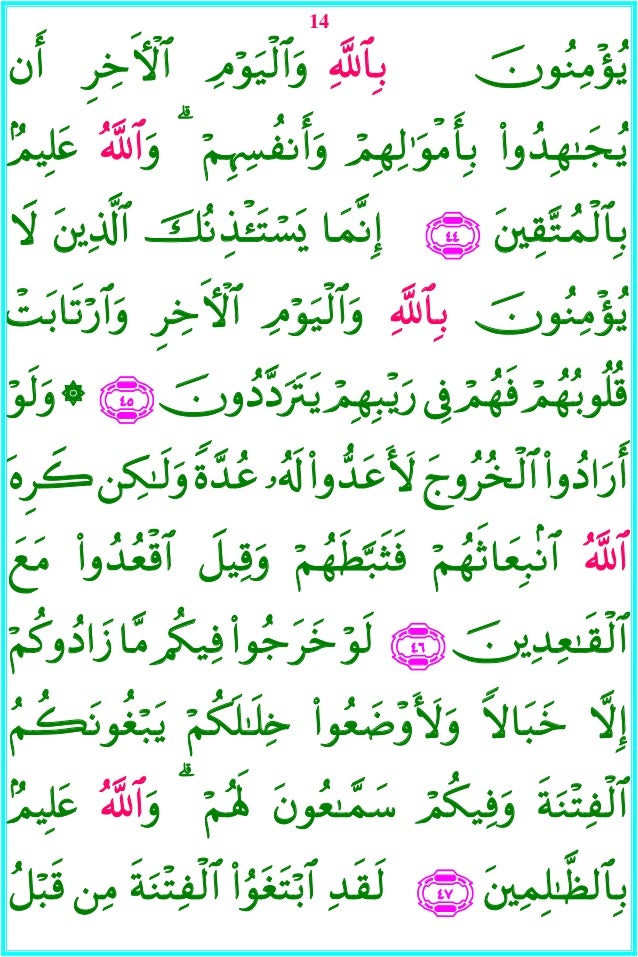 14
يُؤْمِنُونَ بِٱللَّهِ وَٱلْيَوْمِ ٱلْأَخِرِ أَن
يُجَـٰهِدُوا۟ بِأَمْوَٰلِهِمْ وَأَنفُسِهِمْ ۗ وَٱللَّهُ عَلِيمٌۢ
بِٱلْمُتَّقِينَ ٤٤ إِنَّمَا يَسْتَـْٔذِنُكَ ٱلَّذِينَ لَا
يُؤْمِنُونَ بِٱللَّهِ وَٱلْيَوْمِ ٱلْأَخِرِ وَٱرْتَابَتْ
قُلُوبُهُمْ فَهُمْ فِى رَيْبِهِمْ يَتَرَدَّدُونَ ٤٥ ۞ وَلَوْ
أَرَادُوا۟ ٱلْخُرُوجَ لَأَعَدُّوا۟ لَهُۥ عُدَّةً وَلَـٰكِن كَرِهَ
ٱللَّهُ ٱنۢبِعَاثَهُمْ فَثَبَّطَهُمْ وَقِيلَ ٱقْعُدُوا۟ مَعَ
ٱلْقَـٰعِدِينَ ٤٦ لَوْ خَرَجُوا۟ فِيكُم مَّا زَادُوكُمْ
إِلَّا خَبَالًا وَلَأَوْضَعُوا۟ خِلَـٰلَكُمْ يَبْغُونَكُمُ
ٱلْفِتْنَةَ وَفِيكُمْ سَمَّـٰعُونَ لَهُمْ ۗ وَٱللَّهُ عَلِيمٌۢ
بِٱلظَّـٰلِمِينَ ٤٧ لَقَدِ ٱبْتَغَوُا۟ ٱلْفِتْنَةَ مِن قَبْلُ